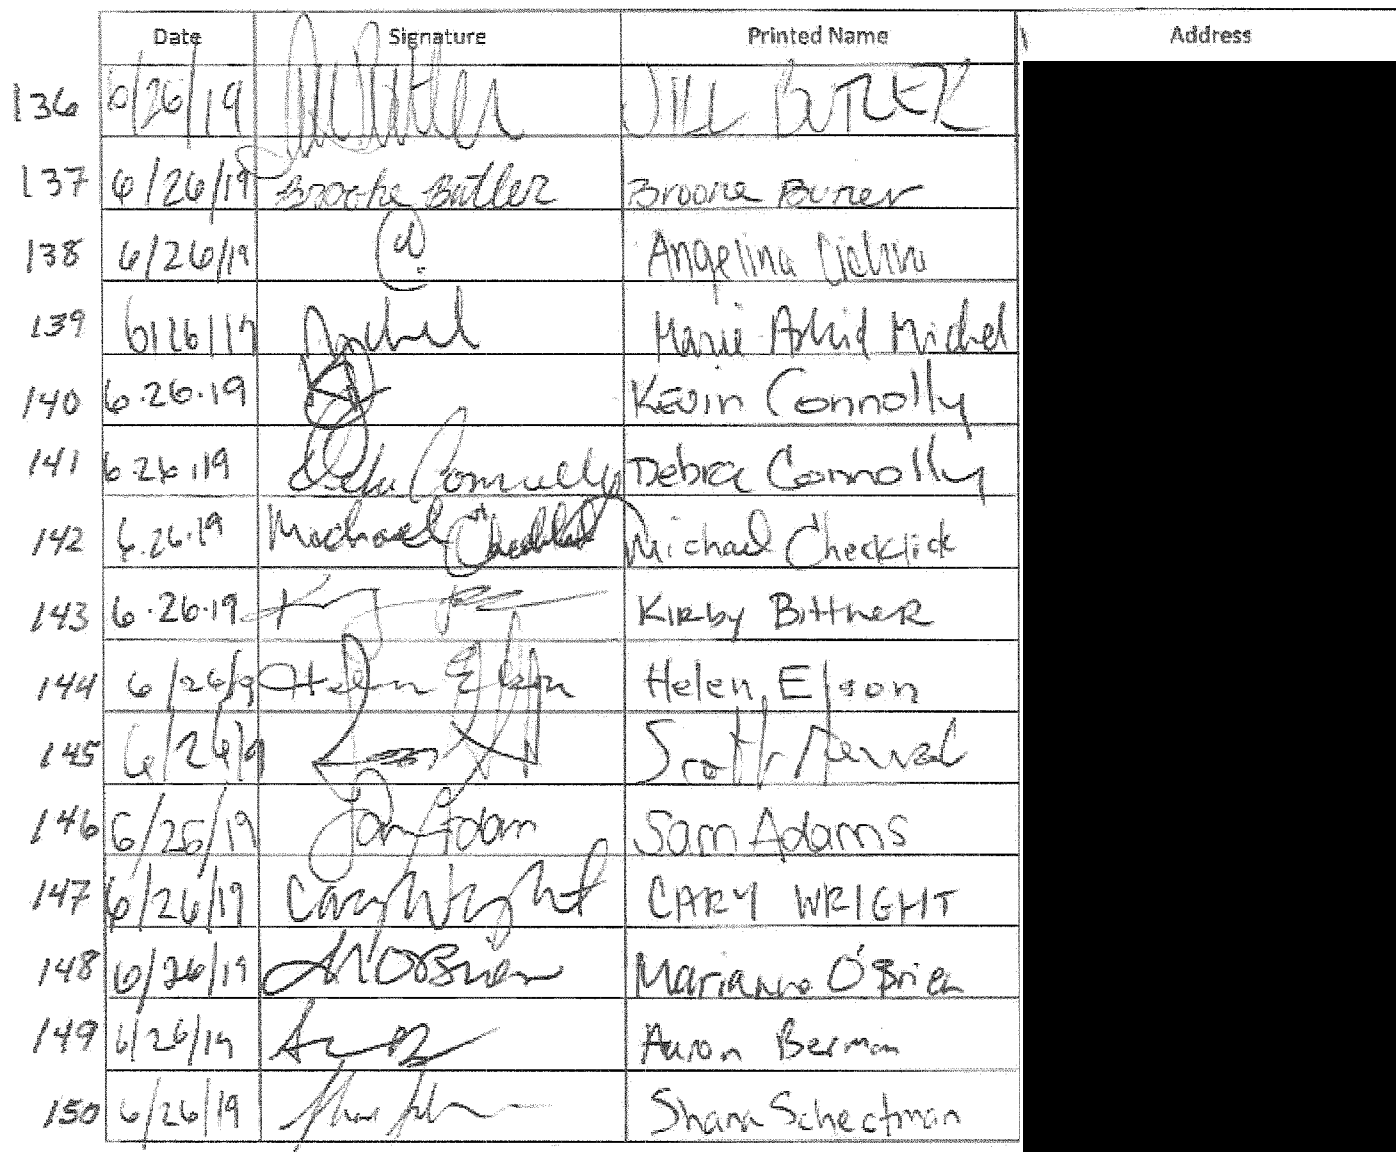 Date Signature Printed Name Address
136 6/26/19 Jill Butler JILL BUTLER
137 6/26/19 Brooke Butler Brooke Butler
138 6/26/19 Angelina
139 6/26/19 Michel Marie Astrid Michel
140 6.26.19 Kevin Connolly
141 6.26.19 Debra Connolly Debra Connolly
142 6.26.19 Michael Checklick Michael Checklick
143 6.26.19 Kirby Bittner
144 6/26/19 Helen Elson Helen Elson
145 6/26/19 Scott
146 6/26/19 Sam Adam Sam Adams
147 6/26/19 Cary Wright CARY WRIGHT
148 6/26/19 M O'Brien Marianne O'Brien
149 6/26/19 Aaron Berman
150 6/26/19 Shana Schectman